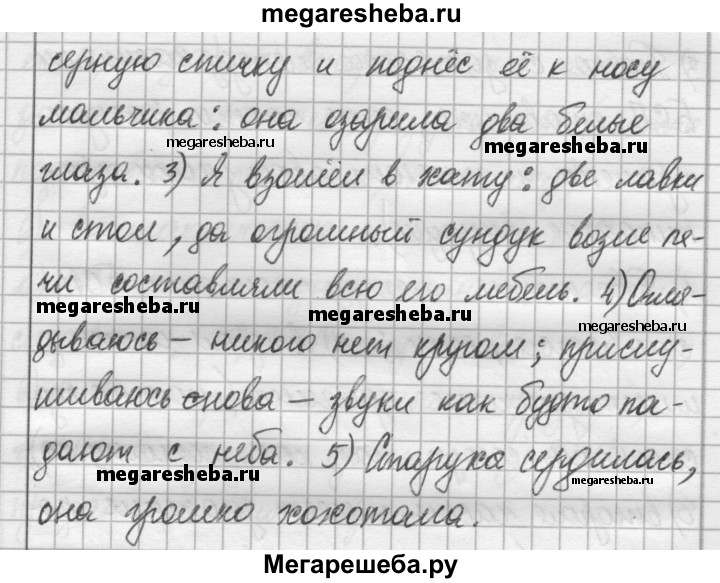 megaresheba.ru
серную спичку и поднёс её к носу
мальчика: она озарила два белые
megaresheba.ru
megaresheba.ru
глаза. 3) Я взошёл в хату: две лавки
и стол, да огромный сундук возле пе-
чи составляли всю его мебель. 4) Огля-
megaresheba.ru
megaresheba.ru
megaresheba.ru
дываюсь – никого нет кругом; прислу-
шиваюсь снова – звуки как будто па-
дают с неба. 5) Старуха сердилась,
megaresheba.ru
megaresheba.ru
она громко хохотала.
Мегарешеба.ру